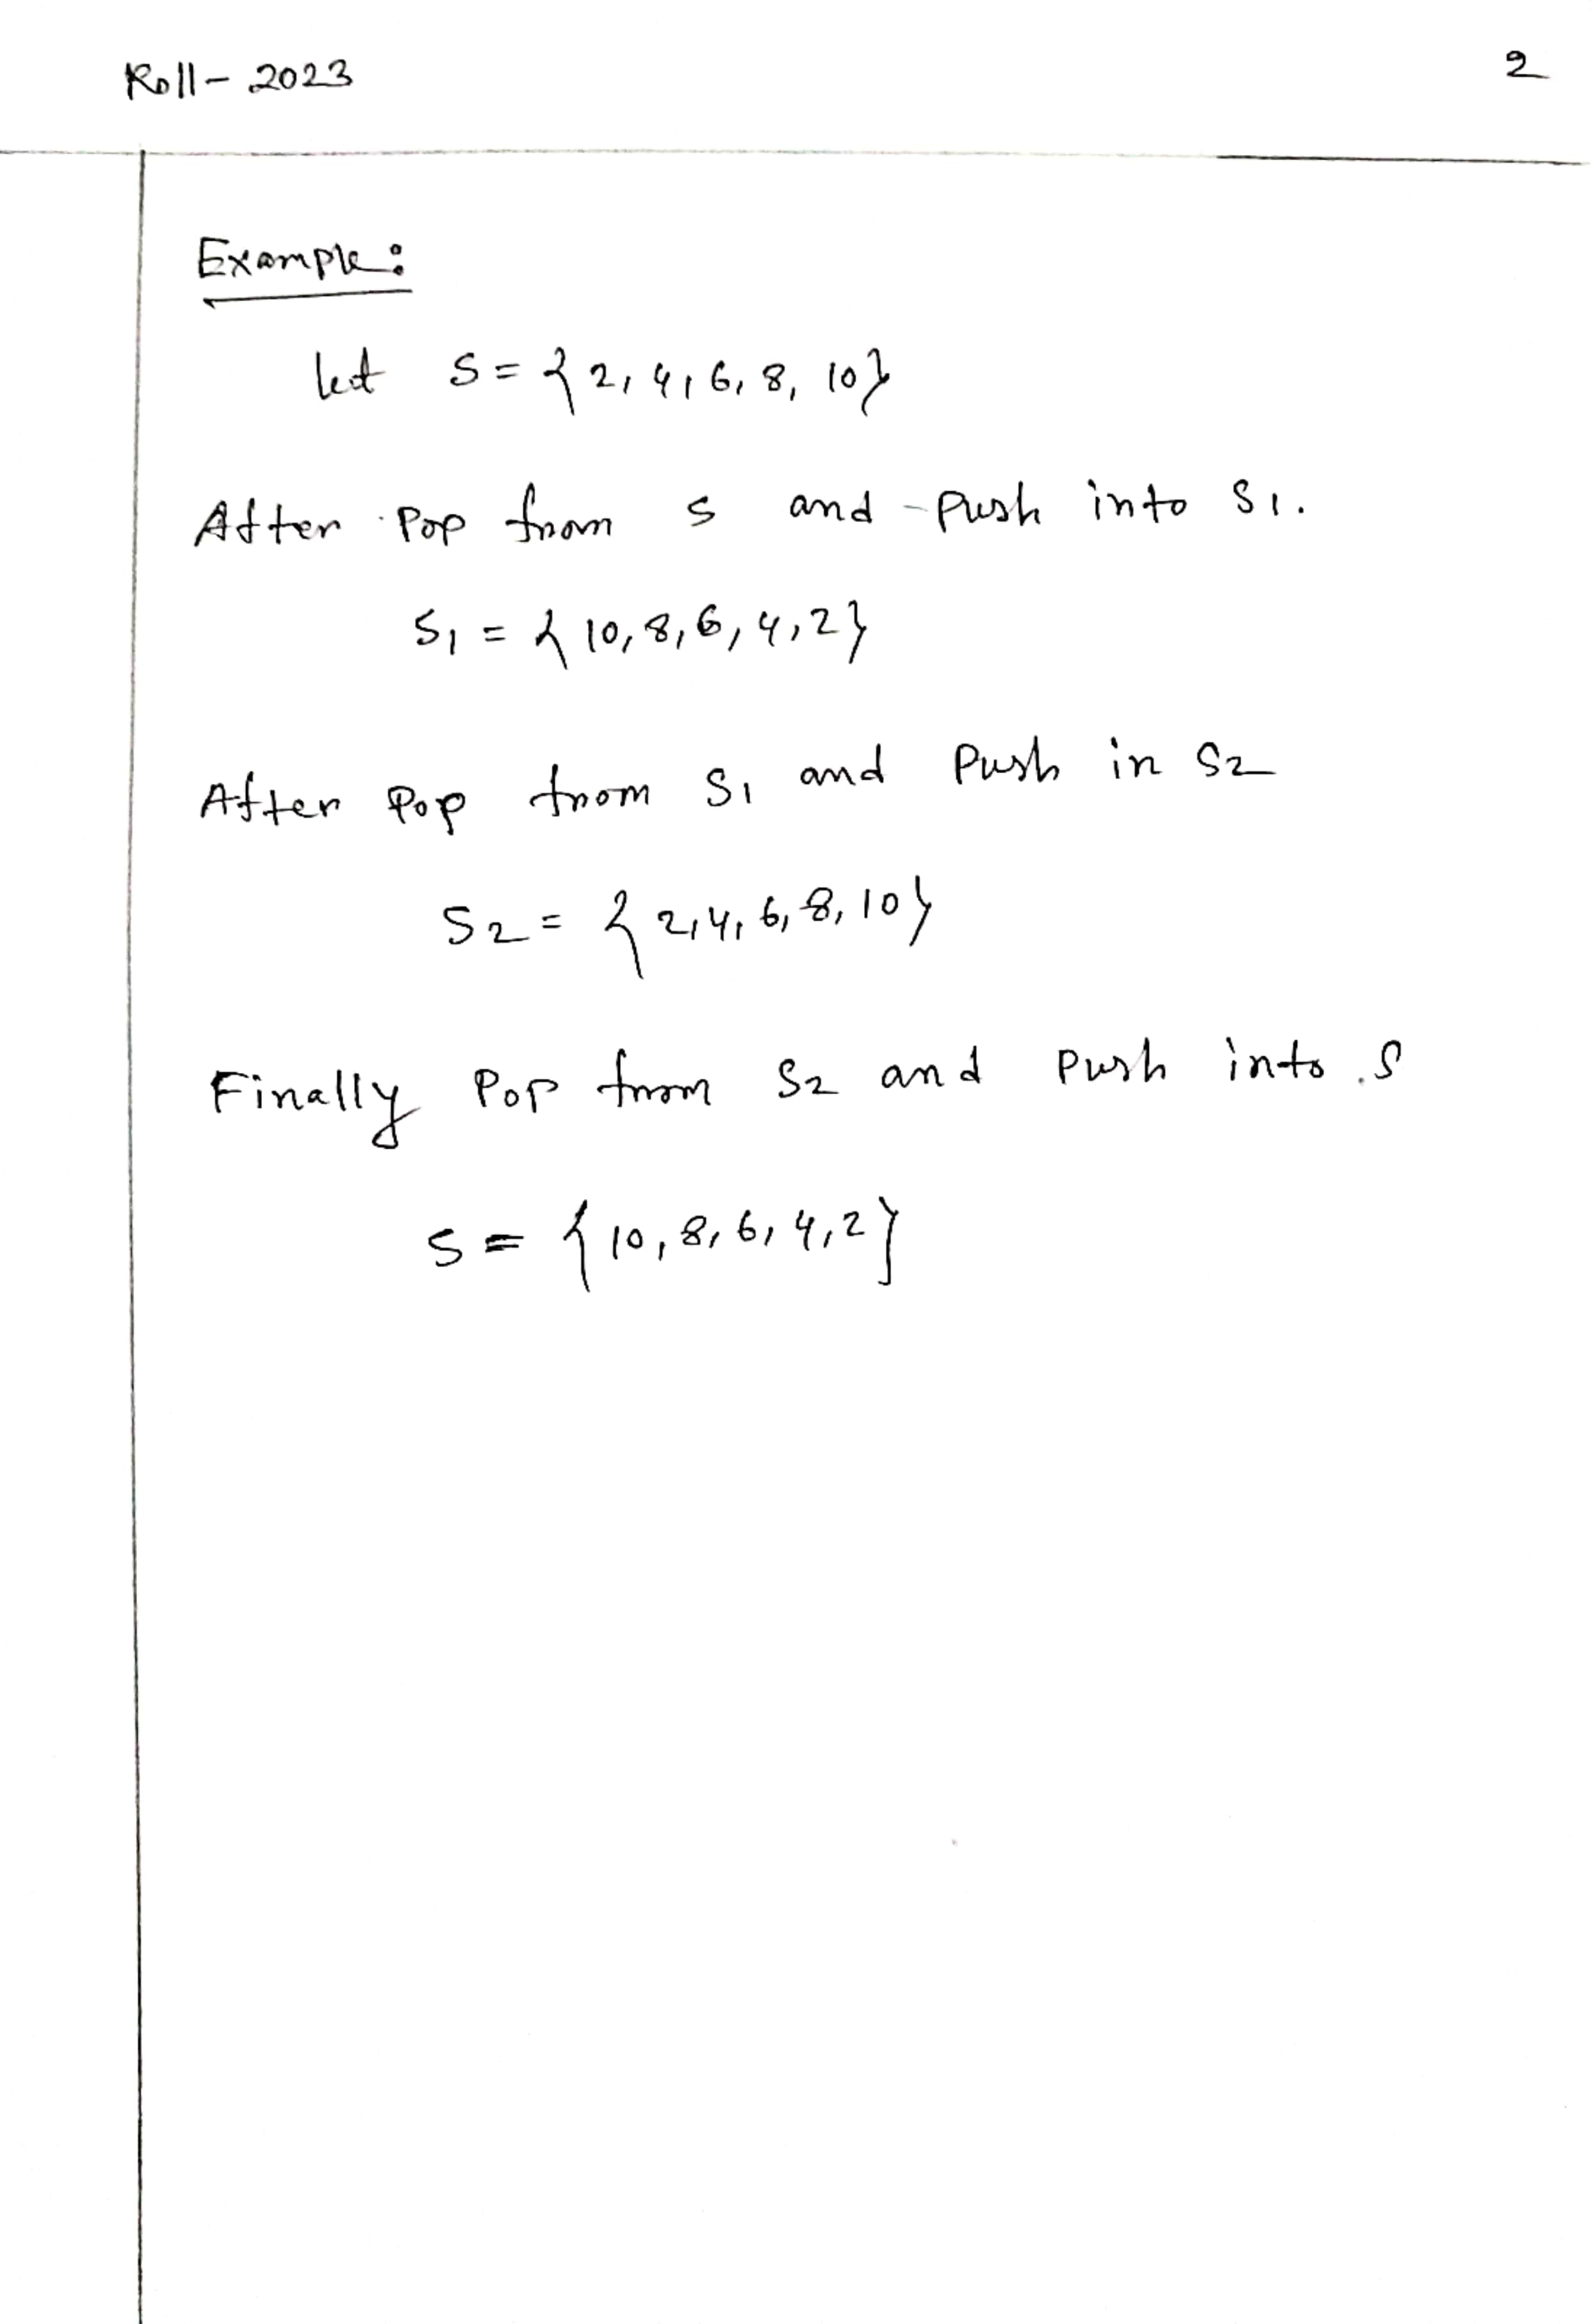 Roll- 2023
2
Example:
let S = {2, 4, 6, 8, 10}
After Pop from S and Push into S1.
S1 = {10, 8, 6, 4, 2}
After Pop from S1 and Push in S2
S2 = {2, 4, 6, 8, 10}
Finally Pop from S2 and Push into S
S = {10, 8, 6, 4, 2}